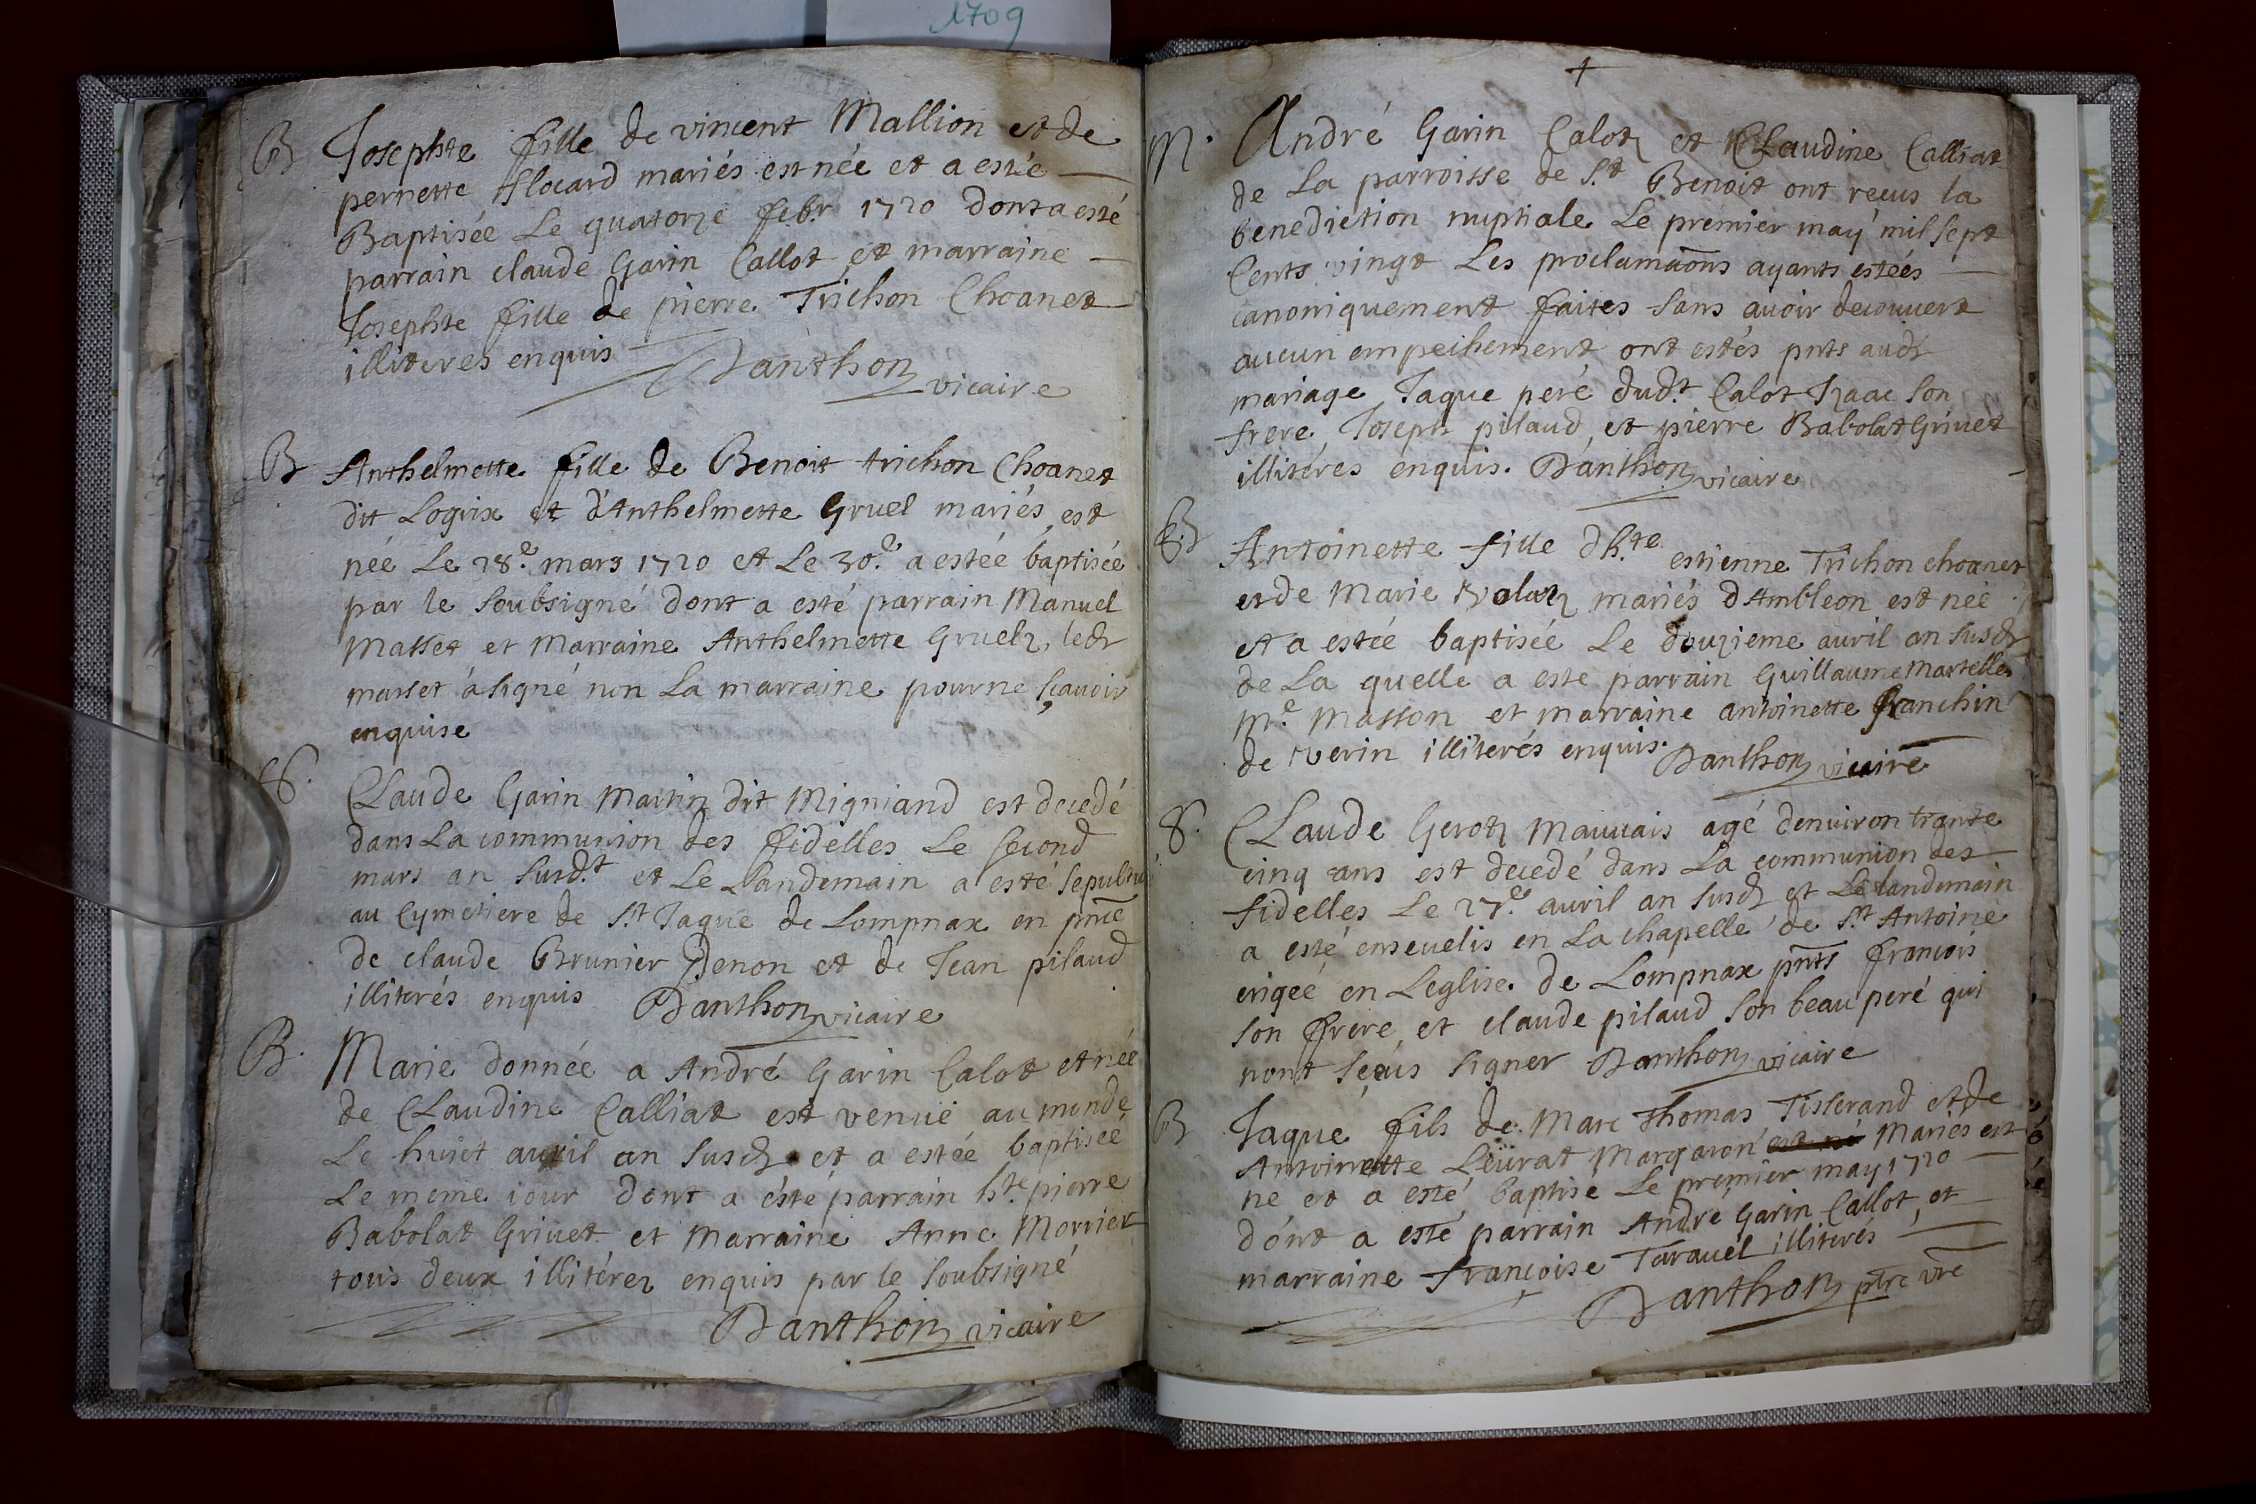 1709
B Josephte fille de vincent Mallion et de
pernette flocard mariés est née et a estée
Baptisée Le quatorze febr. 1720 dont a esté
parrain claude Garin Callot et marraine
Josephte fille de pierre Trichon Choanet
illiteres enquis Danthon vicaire
B Anthelmette fille de Benoit trichon Choanet
dit Logrix et d'Anthelmette Gruel mariés est
née Le 28e. mars 1720 et Le 30e. a estée baptisée
par le soubsigné dont a esté parrain Manuel
Masset et Marraine Anthelmette Gruel, ledt
masset a signé non La marraine pour ne sçavoir
enquise
S. CLaude Garin Martin dit Migniand est decedé
dans La communion des fidelles Le second
mars an susd.t et Le Landemain a esté sepulturé
au Cymetiere de S.t Jaque de Lompnax en pnce
de claude Brunier Denon et de Jean pilaud
illiterés enquis Danthon vicaire
B. Marie donnée a André Garin Calot et née
de CLaudine Calliat est venue au monde
Le huiet auril an susdt et a estée baptiseé
Le meme iour dont a ésté parrain h.te pierre
Babolat Griuet et Marraine Anne Morrier
tous deux illitérez enquis par le soubsigné
Danthon vicaire
+
M. André Garin Calot et CLaudine Calliat
de La parroisse de S.t Benoit ont recus la
benediction nuptiale Le premier may mil sept
Cents vingt Les proclamaons ayants estées
canoniquement faites sans auoir decouuert
aucun empechement ont estés pnts audt
mariage Jaque pere dud.t Calot Izaac son
frere, Joseph pilaud, et pierre Babolat Griuet
illitéres enquis. Danthon vicaire
B Antoinette fille dh.te estienne Trichon choanet
et de Marie mariés d'Ambleon est née
et a estée baptisée Le douzieme auril an susdt
de La quelle a este parrain Guillaume Martelle
M.e Masson et marraine antoinette franchin
de verin illiterés enquis. Danthon vicaire
S. CLaude Gerot Mauuais agé denuiron trante
cinq ans est decedé dans La communion des
fidelles Le 27e. auril an susdt et Le landemain
a esté enseuelis en La chapelle de S.t Antoine
erigeé en Leglise de Lompnax pnts francois
son frere et claude pilaud son beau peré qui
nont sçeus signer Danthon vicaire
B Jaque fils de Marc Thomas Tisserand et de
Antoinette Leurat Margaron est né Mariés est
né et a esté baptise Le premier may 1720
dont a esté parrain André Garin Callot, et
marraine françoise Tarauel illiterés
Danthon ptre vre